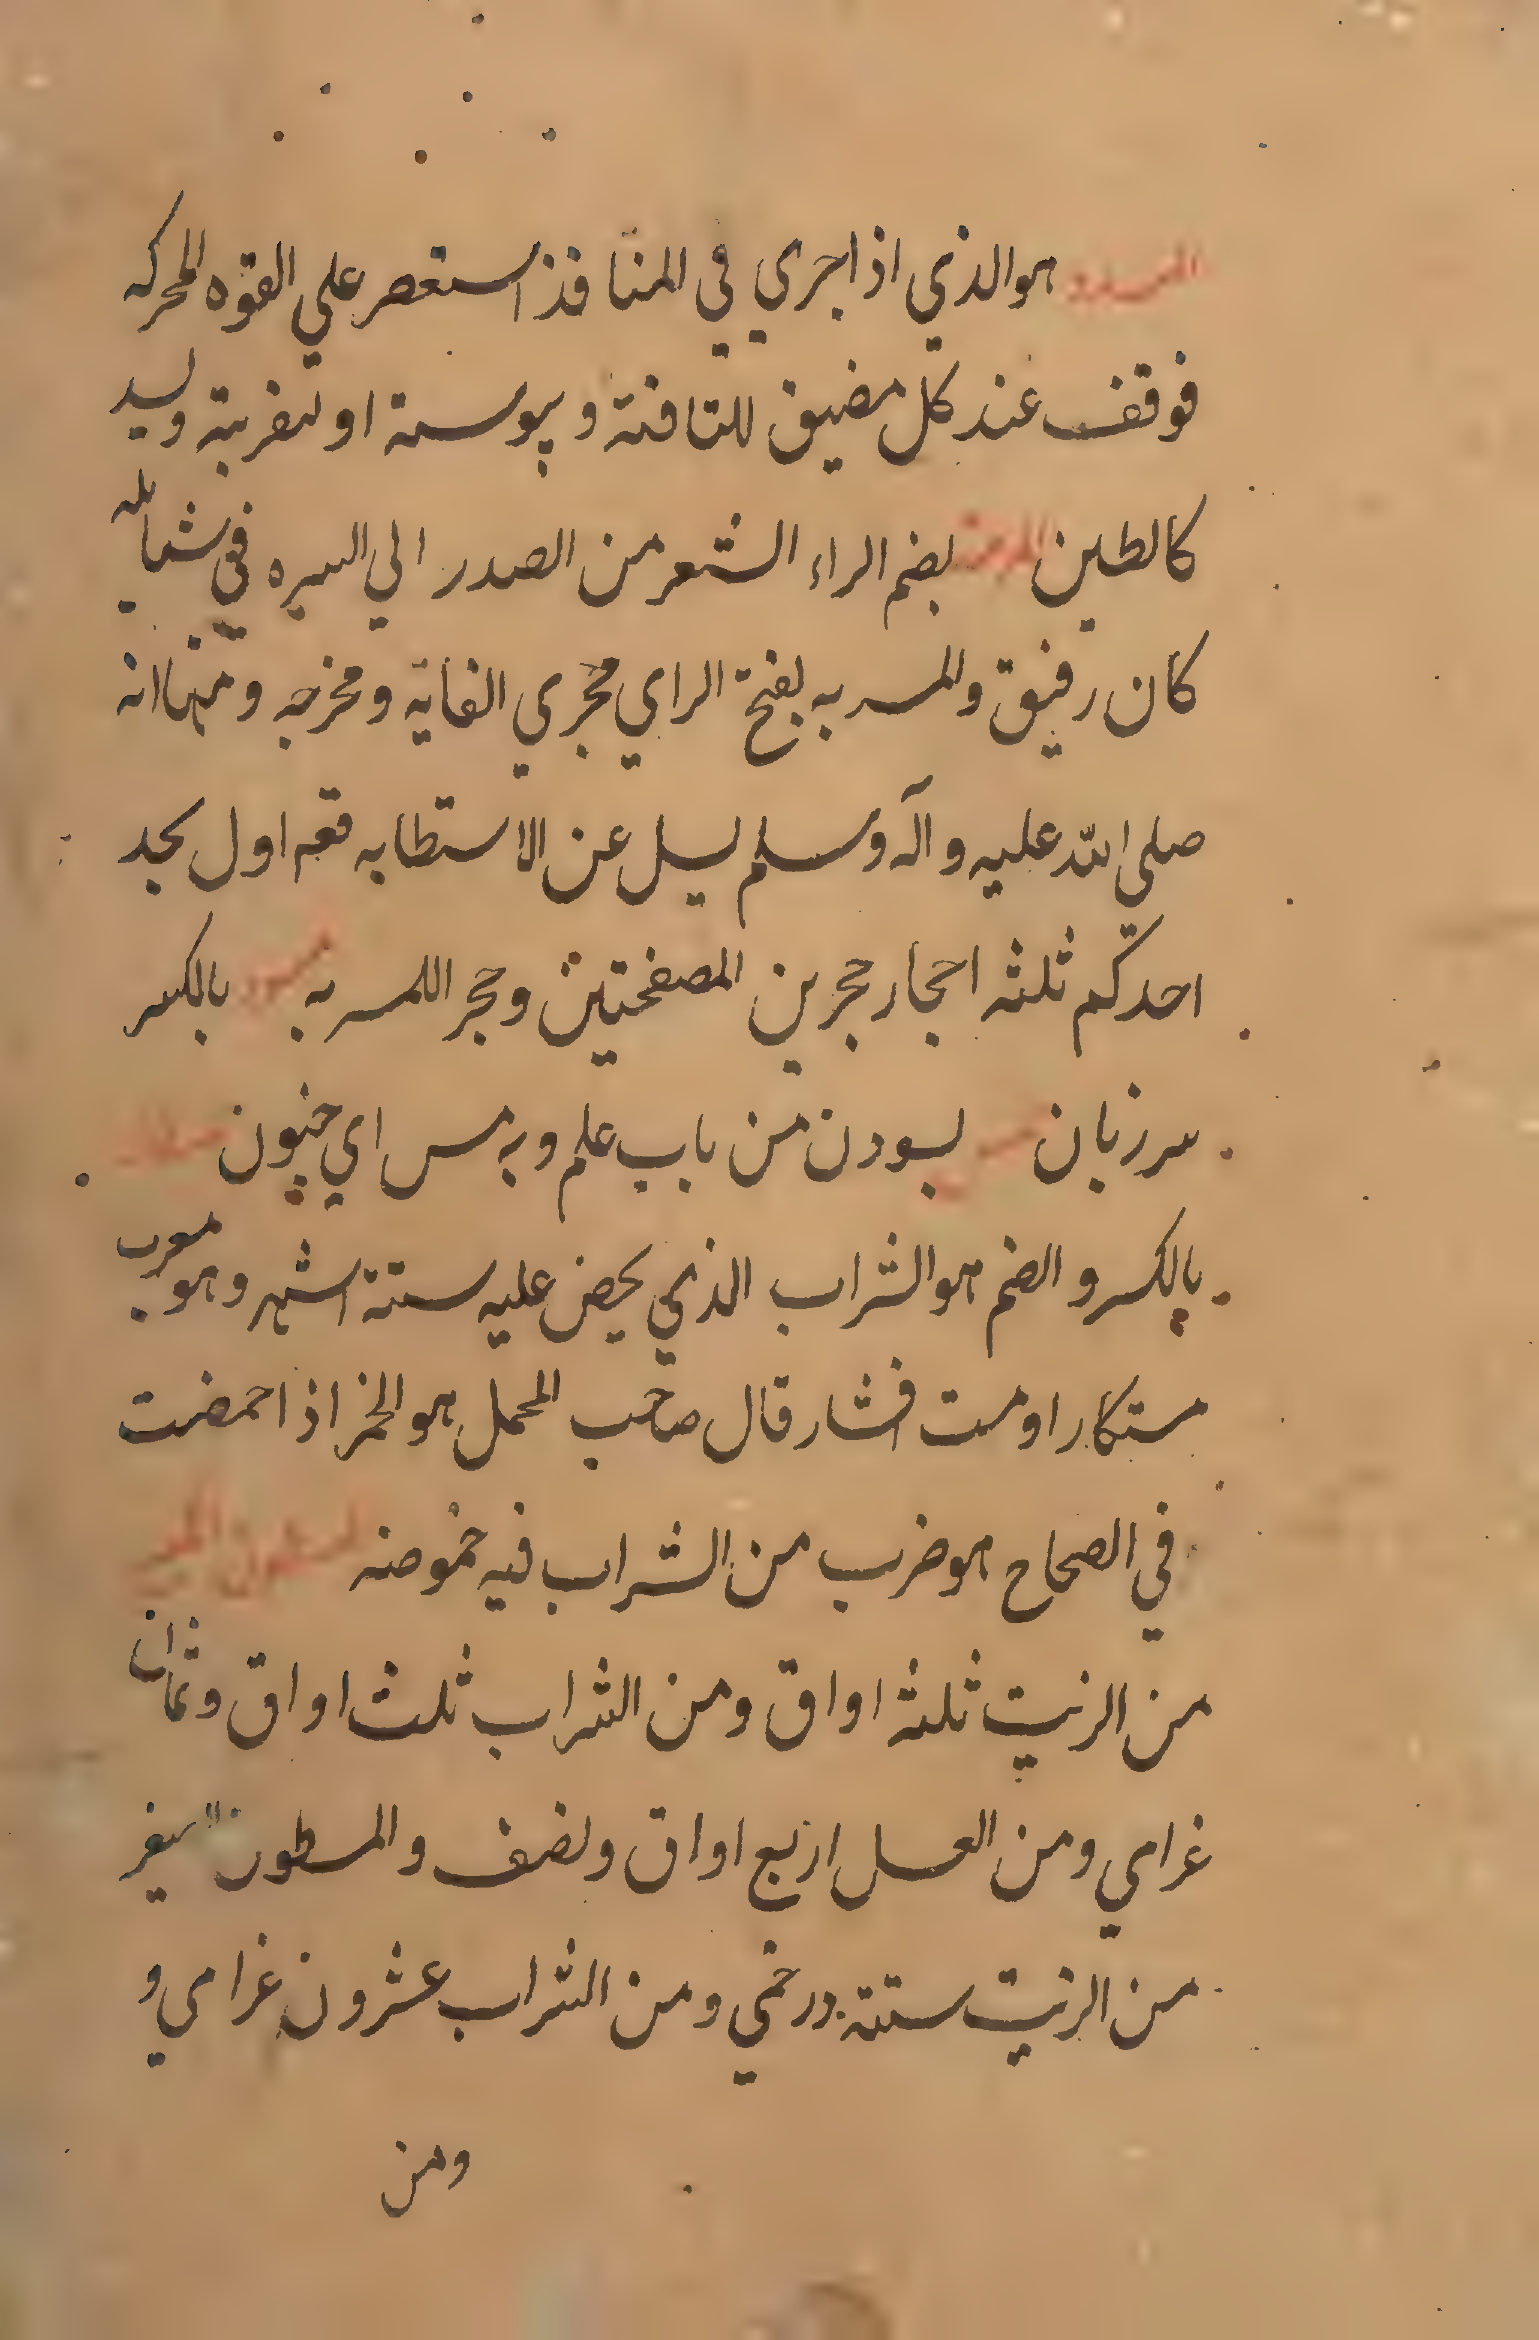 المسدد هو الذي اذا جري في المنافذ استعصر علي القوه المحركه
فوقف عند كل مضيق للتافنة و يبوسة او لتغربتة وليد
كالطين بضم الراء الشعر من الصدر الي السره في شمايله
كان رفيق والمسربه بفتح الراي مجري الغاية ومخرجه ومنها انه
صلي الله عليه و آله وسلم ليسل عن الاستطابه فقم اول يجد
احدكم ثلثه احجار حجرين المصفحتين وحجر اللمسربه بالكسر
سرزبان لسودن من باب علم و به مس اي جنون
بالكسر و الضم هو الشراب الذي يحض عليه ستة اشهر و هو معرب
مستكار او مست افشار قال صاحب المجمل هو الخمر اذ احمضت
في الصحاح هو ضرب من الشراب فيه حموضه المسطرون الكبير
من الزيت ثلثه اواق ومن الشراب ثلث اواق وثمان
غرامي ومن العسل اربع اواق ونصف والمسطرون الصغير
من الزيت ستتة درخمي ومن الشراب عشرون غرامي و
ومن